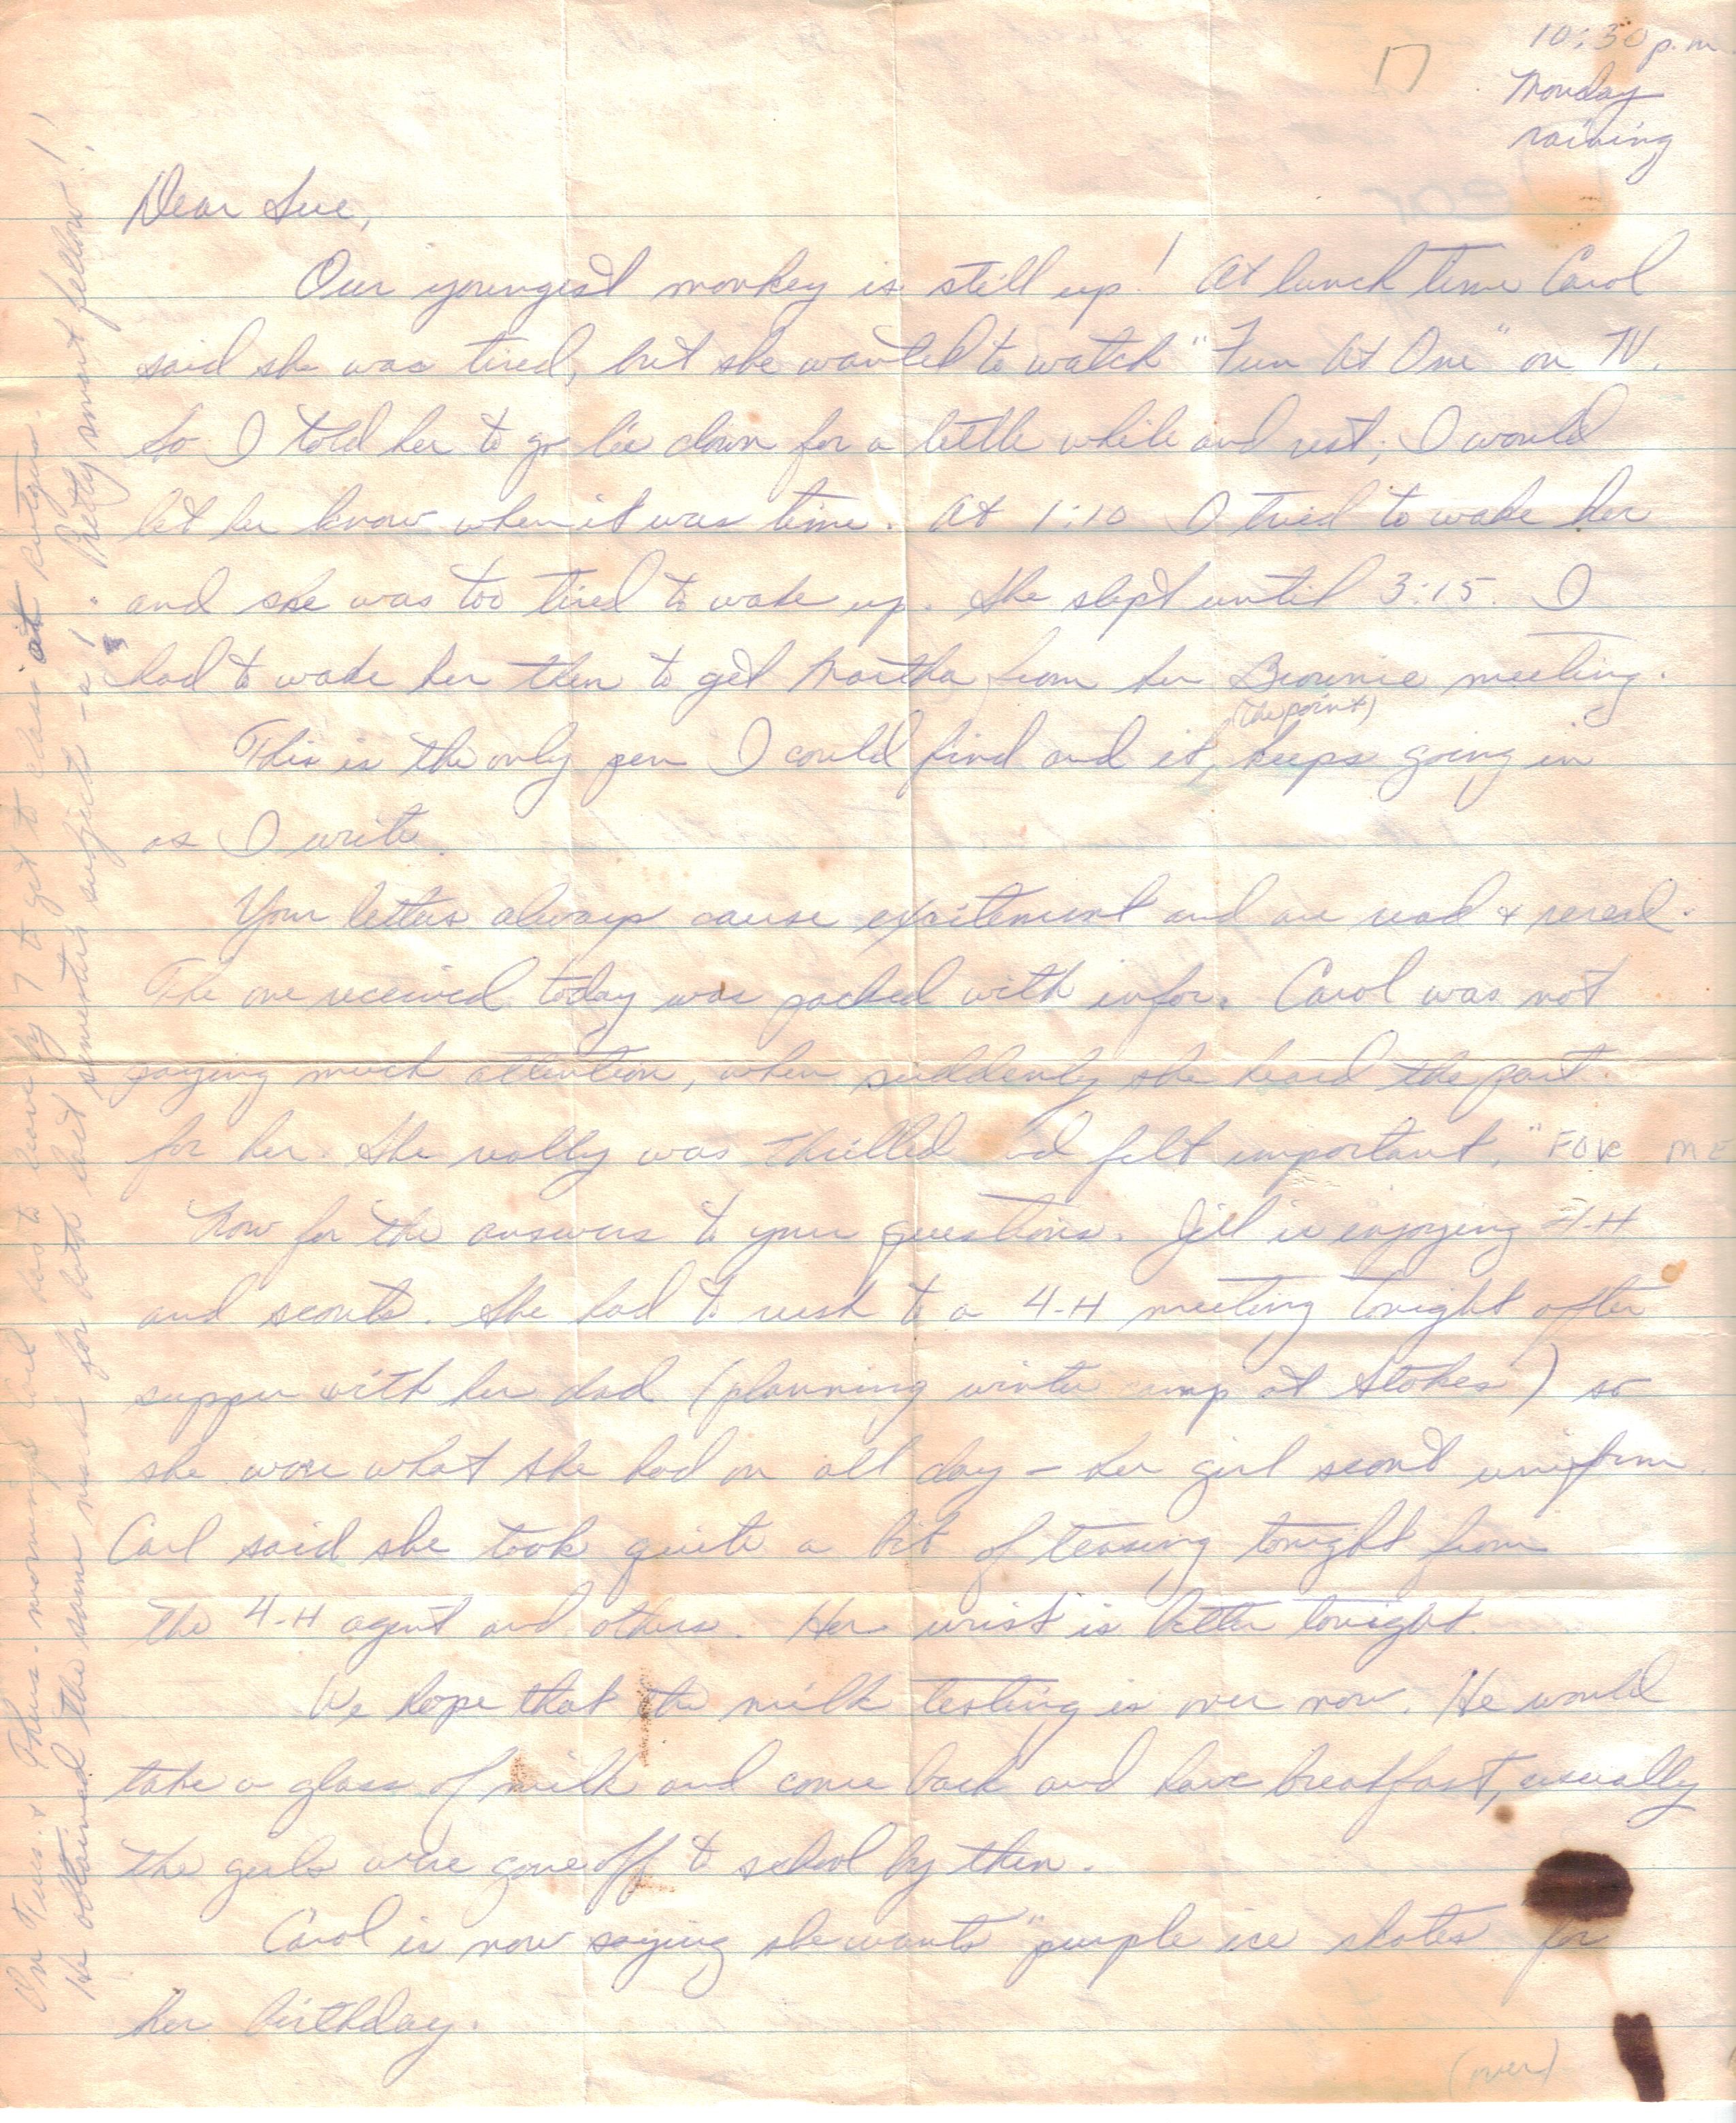 17
10:30 p.m
Monday
raining
Dear Sue,
Our youngest monkey is still up! At lunch time Carol
said she was tired, but she wanted to watch "Fun At One" on TV.
So I told her to go lie down for a little while and rest; I would
let her know when it was time. At 1:10 I tried to wake her
and she was too tired to wake up. She slept until 3:15. I
had to wake her then to get Martha from her Brownie meeting.
(the point)
This is the only pen I could find and it, keeps going in
as I write.
Your letters always cause excitement and are read & reread.
The one received today was packed with infor. Carol was not
paying much attention, when suddenly she heard the part
for her. She really was thrilled and felt important, "FOR ME
Now for the answers to your questions. Jill is enjoying 4-H
and scouts. She had to rush to a 4-H meeting tonight after
supper with her dad (planning winter camp at Stokes) so
she wore what she had on all day - her girl scout uniform.
Carl said she took quite a bit of teasing tonight from
the 4-H agent and others. Her wrist is better tonight.
We hope that the milk testing is over now. He would
take a glass of milk and come back and have breakfast, usually
the girls were gone off to school by then.
Carol is now saying she wants "purple ice skates for
her birthday.
(over)
On Tues. & Thurs. mornings Carl has to leave by 7 to get to class at Rutgers.
He obtained the same mark for both last semesters subjects - a 1. Pretty smart fellow!!